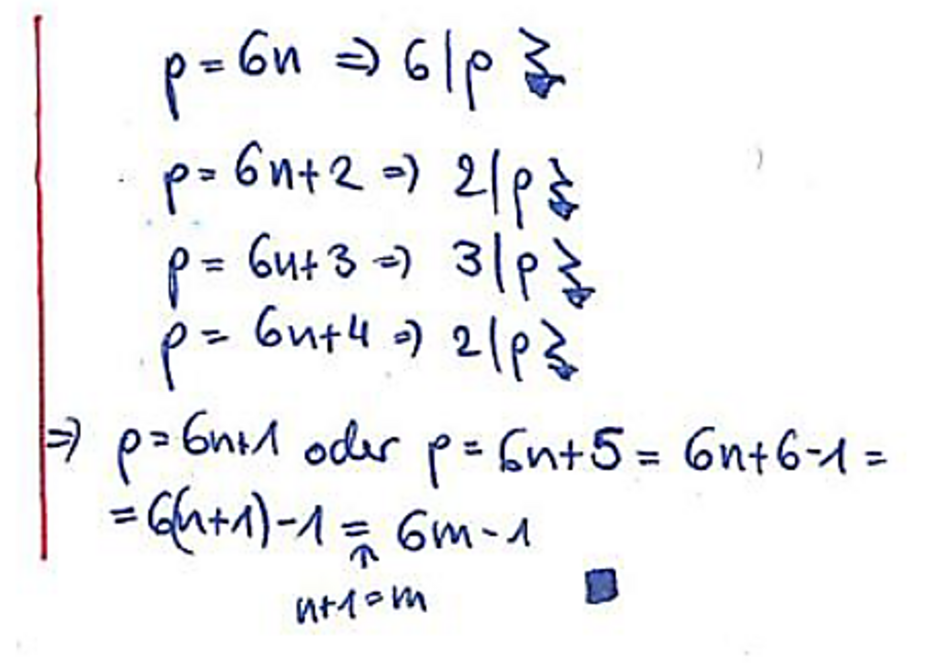 p = 6n ⇒ 6|p ↯
p = 6n+2 ⇒ 2|p ↯
p = 6n+3 ⇒ 3|p ↯
p = 6n+4 ⇒ 2|p ↯
⇒ p = 6n+1 oder p = 6n+5 = 6n+6-1 =
= 6(n+1)-1 = 6m-1
↑
n+1=m ■